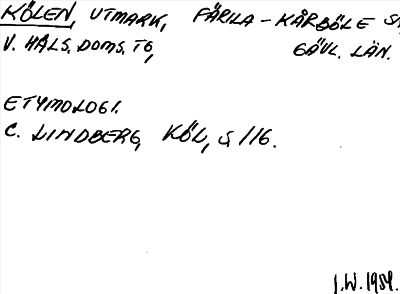 KÖLEN, UTMARK, FÄRILA-KÅRBÖLE
V. HÄLS. DOMS. TG, GÄVL. LÄN.
ETYMOLOGI.
C. LINDBERG, KÖL, S 116.
I.W. 1984.